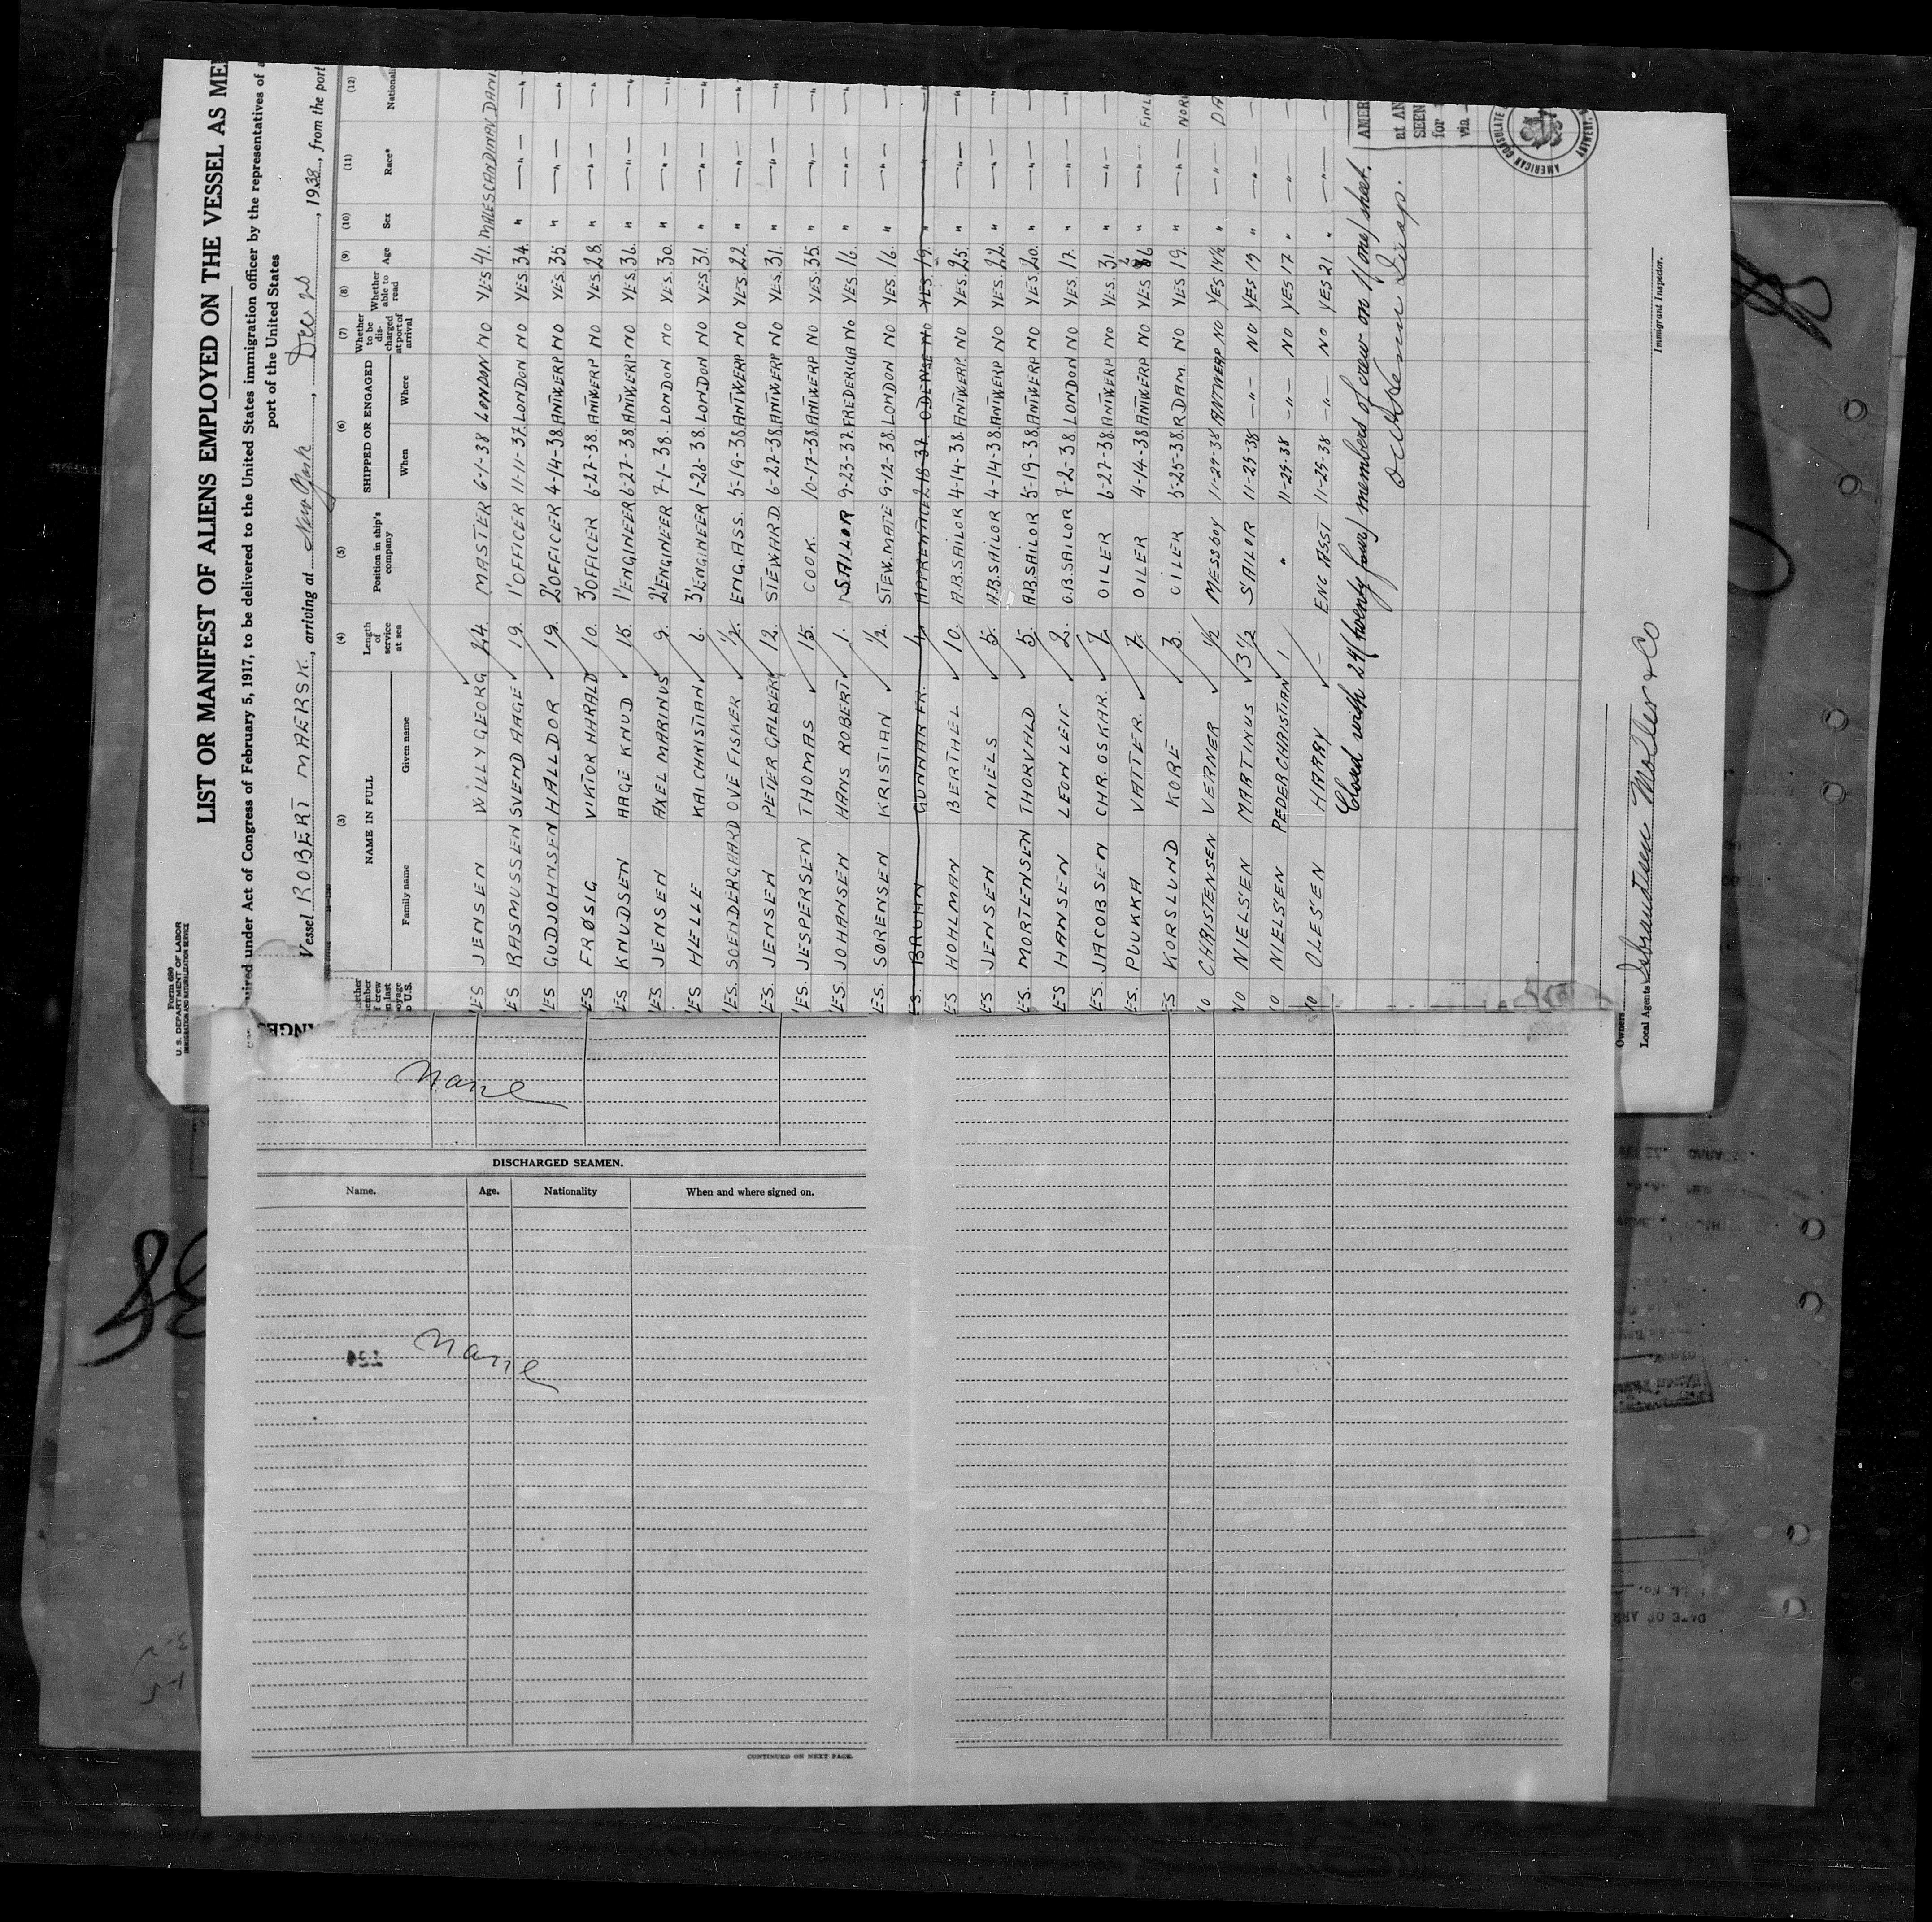 Form 680
U. S. DEPARTMENT OF LABOR
IMMIGRATION AND NATURALIZATION SERVICE
LIST OR MANIFEST OF ALIENS EMPLOYED ON THE VESSEL AS ME
under Act of Congress of February 5, 1917, to be delivered to the United States immigration officer by the representatives of a
port of the United States
Vessel ROBERT MAERSK, arriving at New York, Dec 20, 1938, from the port
(3) (4) (5) (6) (7) (8) (9) (10) (11) (12)
NAME IN FULL Length of service at sea Position in ship's company SHIPPED OR ENGAGED Whether to be discharged at port of arrival Whether able to read Age Sex Race*
Family name Given name When Where
ES JENSEN WILLY GEORG 24 MASTER 6-1-38 LONDON NO YES 41. MALE SCANDINAV. DANI
ES RASMUSSEN SVEND AAGE 19. 1'OFFICER 11-11-37. LONDON NO YES. 34. " —"— —"—
ES GUDJOHNSEN HALLDOR 19. 2'OFFICER 4-14-38. ANTWERP NO YES. 35. " —"— —"—
ES FRØSIG VIKTOR HARALD 10. 3'OFFICER 6-27-38. ANTWERP NO YES. 28. " —"— —"—
ES KNUDSEN AAGE KNUD 15. 1'ENGINEER 6-27-38 ANTWERP NO YES. 36. " —"— —"—
ES JENSEN AXEL MARINUS 9. 2'ENGINEER 7-1-38. LONDON NO YES. 30. " —"— —"—
ES HELLE KAI CHRISTIAN 6. 3'ENGINEER 1-26-38. LONDON NO YES 31. " —"— —"—
ES. SOENDERGAARD OVE FISKER 1/2. ENG. ASS. 5-19-38 ANTWERP NO YES. 22. " —"— —"—
ES. JENSEN PETER GALBERG 12. STEWARD. 6-27-38 ANTWERP NO YES. 31. " —"— —"—
ES. JESPERSEN THOMAS 15. COOK. 10-17-38. ANTWERP NO YES. 35. " —"— —"—
ES. JOHANSEN HANS ROBERT 1. SAILOR 9-23-37. FREDERICIA NO YES. 16. " —"— —"—
ES. SORENSEN KRISTIAN 1/2. STEW. MATE 9-12-38. LONDON NO YES. 16. " —"— —"—
ES. BRUHN GUNNAR FR. 4. APPRENTICE 2-18-37. ODENSE NO YES. 19. " —"— —"—
ES HOHLMAN BERTHEL 10. A.B. SAILOR 4-14-38. ANTWERP. NO YES. 25. " —"— —"—
ES JENSEN NIELS 5. A.B. SAILOR 4-14-38 ANTWERP NO YES. 22. " —"— —"—
ES. MORTENSEN THORVALD 5. A.B. SAILOR 5-19-38 ANTWERP NO YES 20. " —"— —"—
ES HANSEN LEON LEIF 2. O.B. SAILOR 7-2-38. LONDON NO YES. 17. " —"— —"—
ES. JACOBSEN CHR. OSKAR. 7. OILER 6-27-38 ANTWERP NO YES. 31. " —"— —"
ES. PUUKKA VATTER. 7. OILER 4-14-38 ANTWERP NO YES " —"— FINL
ES KORSLUND KORE 3. OILER 5-25-38. R.DAM. NO YES 19. " —"— NORW
NO CHRISTENSEN VERNER 1/2 MESSBOY 11-29-38 ANTWERP NO YES 14½ " —"— DA
NO NIELSEN MARTINUS 3 1/2 SAILOR 11-29-38 —"— NO YES 19 " —"—
NO NIELSEN PEDER CHRISTIAN 1 " 11-29-38 —"— NO YES 17 " —"—
NO OLESEN HARRY – ENG ASST 11-29-38 —"— NO YES 21 " —"—
Closed with 24/twenty four/ members of crew on 1/one/ sheet.
AMER
at AN
SEEN
for
via
AMERICAN CONSULATE
Owners
Local Agents Isbrandtsen Moller & Co
Immigrant Inspector.
None
DISCHARGED SEAMEN.
Name. Age. Nationality When and where signed on.
None
CONTINUED ON NEXT PAGE.
DATE OF ARR